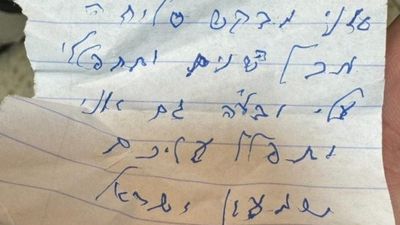 אני מבקש סליחה
מכל השנים ותתפללי
עלי ובע"ה גם אני
יתפלל עליכם
שמעון ישראל